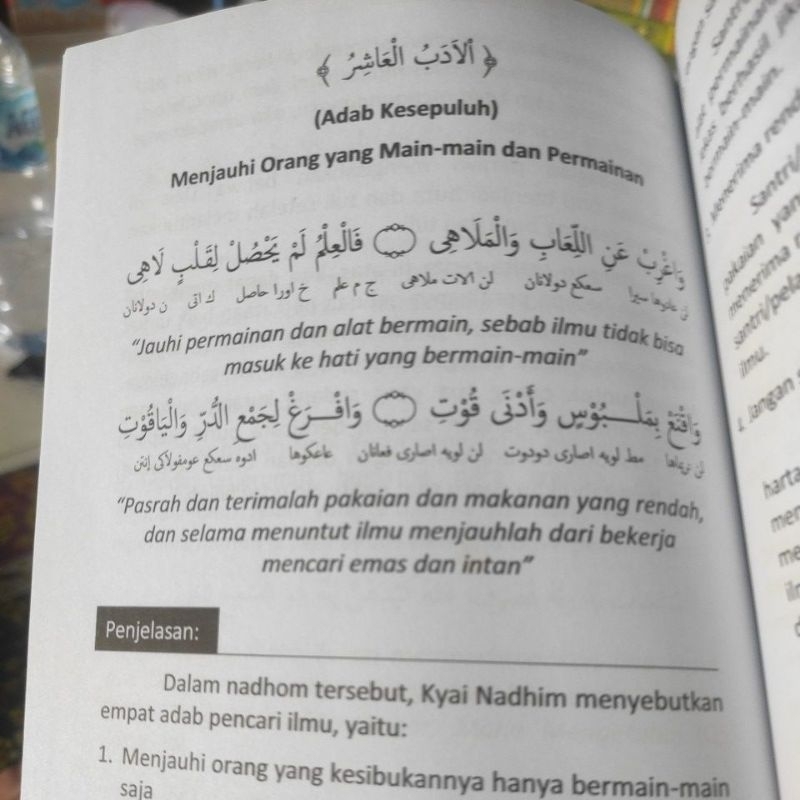 ﴿ اَلْاَدَبُ الْعَاشِرُ ﴾
(Adab Kesepuluh)
Menjauhi Orang yang Main-main dan Permainan
وَاغْرِبْ عَنِ اللِّعَابِ وَالْمَلَاهِى ۝ فَالْعِلْمُ لَمْ يَحْصُلْ لِقَلْبٍ لَاهِى
سعكع دولانان لن آلات ملاهى ج م علم خ اورا حاصل ك اتى ن دولانان
“Jauhi permainan dan alat bermain, sebab ilmu tidak bisa
masuk ke hati yang bermain-main”
وَاقْنَعْ بِمَلْبُوْسٍ وَأَدْنَى قُوْتِ ۝ وَافْرَغْ لِجَمْعِ الدُّرِّ وَالْيَاقُوْتِ
لن لويه اصارى
“Pasrah dan terimalah pakaian dan makanan yang rendah,
dan selama menuntut ilmu menjauhlah dari bekerja
mencari emas dan intan”
Penjelasan:
Dalam nadhom tersebut, Kyai Nadhim menyebutkan
empat adab pencari ilmu, yaitu:
1. Menjauhi orang yang kesibukannya hanya bermain-main
saja
Santri
permainan
berhasil jika
bermain-main.
Menerima rend
Santri/
pakaian yang
menerima
santri/pela
ilmu.
Jangan
harta